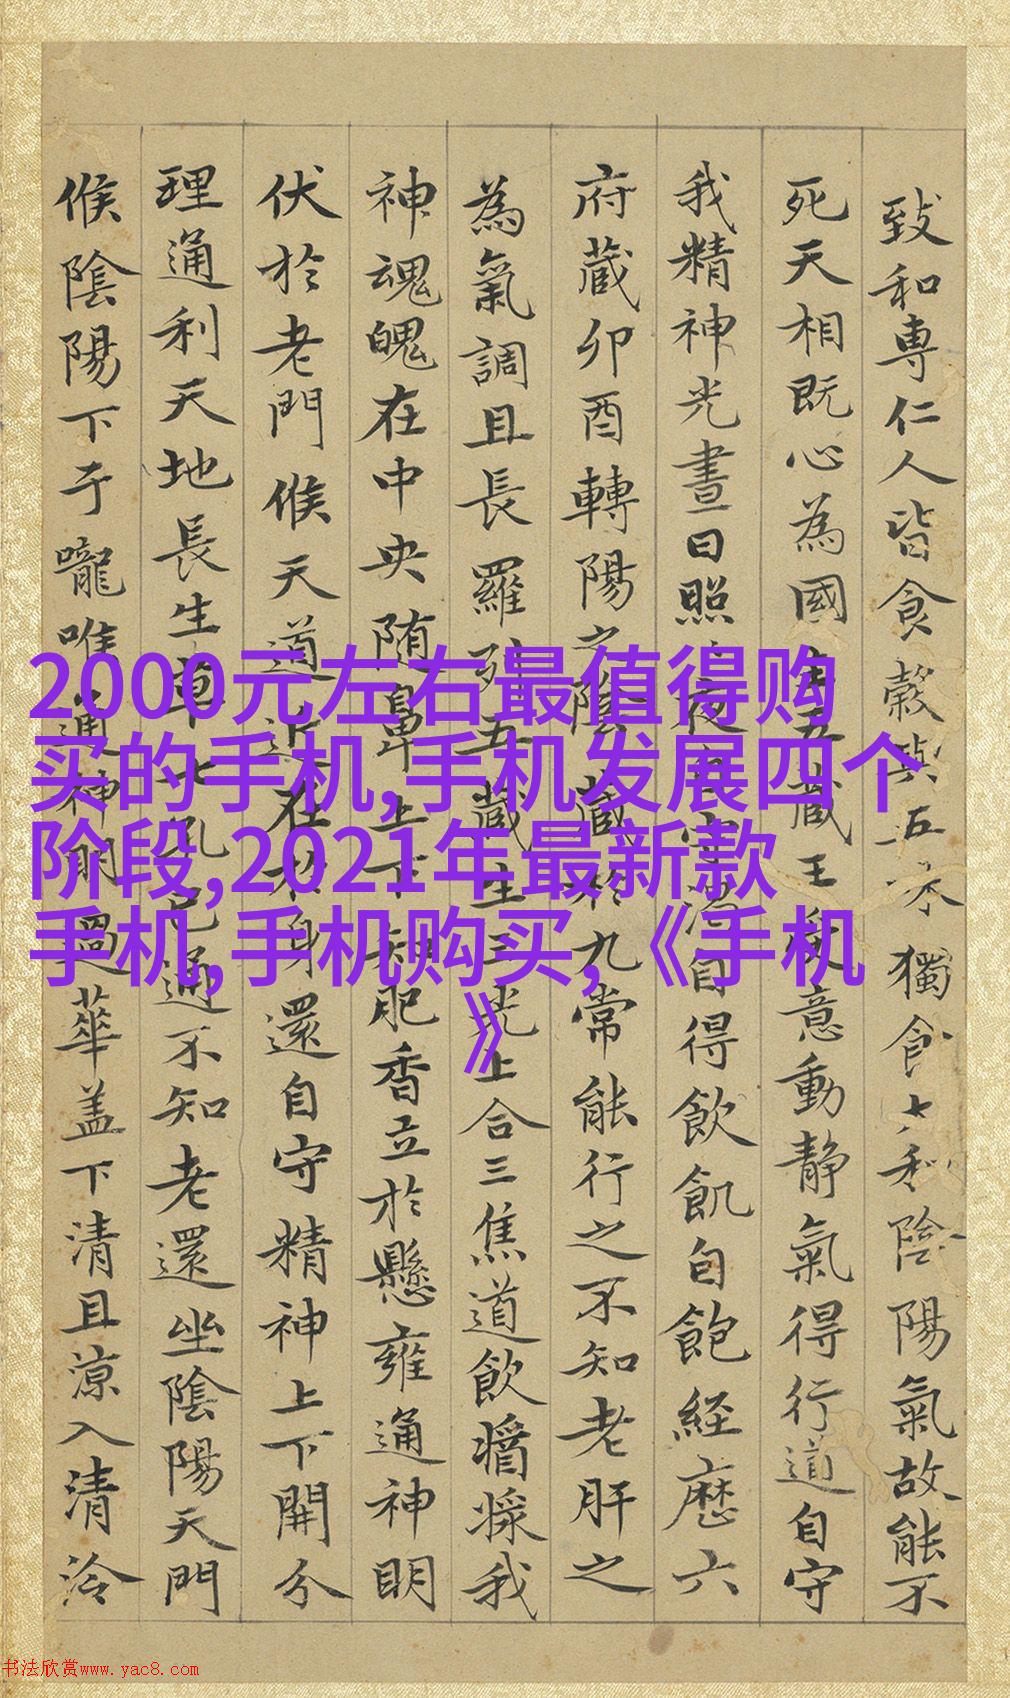 致和專仁人皆食穀與五味獨食太和陰陽氣故能不
死天相既心為國主五藏王受意動静氣得行道自守
我精神光晝日照夜自得飲飢自飽経歷六
府藏卯酉轉陽之陰藏於九常能行之不知老肝之
為氣調且長羅列五藏生三光上合三焦道飲醬漿我
神魂魄在中央随鼻上下知肥香立於懸雍通神明
伏於老門候天道近在於身還自守精神上下開分
理通利天地長生草七孔已通不知老還坐陰陽天門
候陰陽下于嚨喉通神明過華盖下清且涼入清泠
2000元左右最值得购
买的手机,手机发展四个
阶段,2021年最新款
手机,手机购买,《手机
》
书法欣赏www.yac8.com